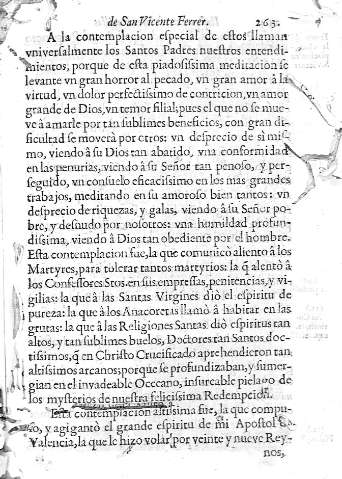 de San Vicente Ferrer. 263.
A la contemplacion especial de estos llaman
vniversalmente los Santos Padres nuestros entendi-
mientos, porque de esta piadosissima meditacion se
levante vn gran horror al pecado, vn gran amor à la
virtud, vn dolor perfectissimo de contricion, vn amor
grande de Dios, vn temor filial; pues el que no se mue-
ve à amarle por tan sublimes beneficios, con gran di-
ficultad se moverà por otros: vn desprecio de sì mis-
mo, viendo à su Dios tan abatido, vna conformidad
en las penurias, viendo à su Señor tan penoso, y per-
seguido, vn consuelo eficacissimo en los mas grandes
trabajos, meditando en su amoroso bien tantos: vn
desprecio de riquezas, y galas, viendo à su Señor po-
bre, y desnudo por nosotros: vna humildad profun-
dissima, viendo à Dios tan obediente por el hombre.
Esta contemplacion fue, la que comunicò aliento à los
Martyres, para tolerar tantos martyrios: la q̃ alentò à
los Confessores Stos. en sus empressas, penitencias, y vi-
gilias: la que à las Santas Virgines diò el espiritu de
pureza: la que à los Anacoretas llamò à habitar en las
grutas: la que à las Religiones Santas diò espiritus tan
altos, y tan sublimes buelos, Doctores tan Santos doc-
tissimos, q̃ en Christo Crucificado aprehendieron tan
altissimos arcanos; porque se profundizaban, y sumer-
gian en el invadeable Occeano, insureable pielago de
los mysterios de nuestra felicissima Redempcion.
Esta contemplacion altissima fue, la que compu-
so, y agigantò el grande espiritu de mi Apostol
Valencia, la que le hizo volar por veinte y nueve Rey-
nos,